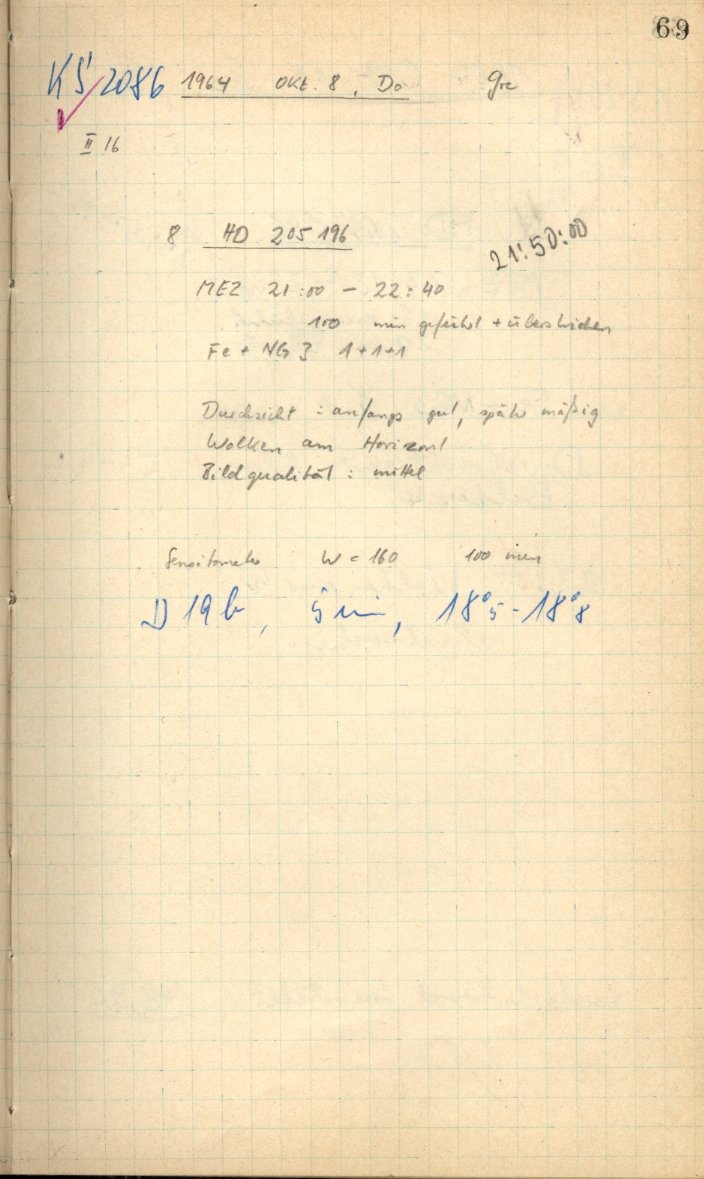 69
KŠ 2086 1964 OKT. 8. Do Gre
II 16
8 HD 205 196
21:50:00
MEZ 21:00 - 22:40
100 min geführt + überstrichen
Fe + NG 3 1+1+1
Durchsicht: anfangs gut, später mäßig
Wolken am Horizont
Bildqualität: mittel
Sensitometer W = 160 100 min
D 19b, 5 min, 18°5 - 18°8